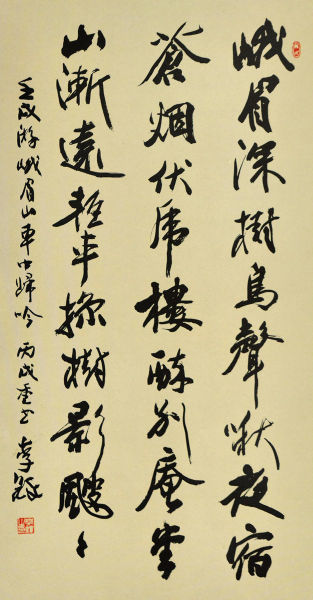 峨眉深樹鳥聲啾夜宿
蒼烟伏虎樓酔别庵堂
山漸遠輕車掠樹影颼〻
壬戌游峨眉山車中歸吟 丙戌重书 李